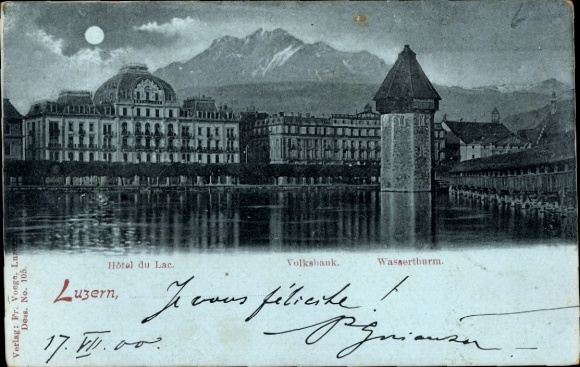 Hôtel du Lac. Volksbank. Wasserthurm.
Luzern,
Je vous félicite!
17. VII. 00.
Verlag: Fr. Voege, Luzern
Dess. No. 105.